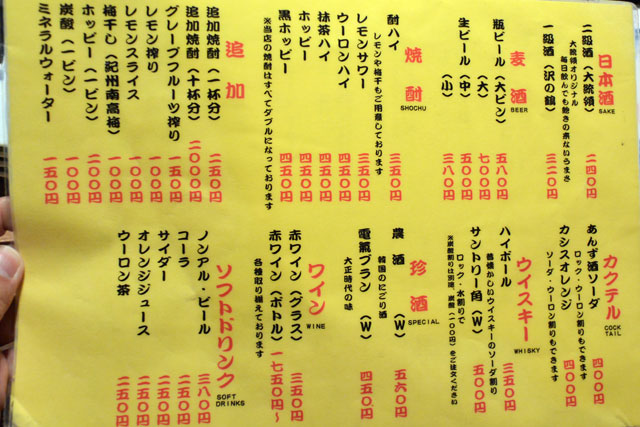 日本酒
SAKE
二級酒(大統領) 二四〇円
大統領オリジナル
毎日飲んでも飽きの来ないうまさ
一級酒(沢の鶴) 三二〇円
麦酒
BEER
瓶ビール(大ビン) 五八〇円
生ビール(大) 七〇〇円
(中) 五〇〇円
(小) 三八〇円
焼酎
SHOCHU
酎ハイ 三五〇円
レモンや梅干もご用意しております
レモンサワー 三五〇円
ウーロンハイ 四五〇円
抹茶ハイ 四五〇円
ホッピー 四五〇円
黒ホッピー 四五〇円
※当店の焼酎はすべてダブルになっております
追加
追加焼酎(一杯分) 二五〇円
追加焼酎(十杯分) 二〇〇〇円
グレープフルーツ搾り 一五〇円
レモン搾り 一〇〇円
レモンスライス 一〇〇円
梅干し(紀州南高梅) 一〇〇円
ホッピー(一ビン) 二〇〇円
炭酸(一ビン) 一〇〇円
ミネラルウォーター 一五〇円
カクテル
COCK TAIL
あんず酒ソーダ 四〇〇円
ロック・ウーロン割りもできます
カシスオレンジ 四〇〇円
ソーダ・ウーロン割りもできます
ウイスキー
WHISKY
ハイボール 三五〇円
昔懐かしいウイスキーのソーダ割り
サントリー角(W) 五〇〇円
ロック・水割りで
※炭酸割りは別途、炭酸(一〇〇円)をご注文ください
珍酒
SPECIAL
農酒(W) 五六〇円
韓国のにごり酒
電気ブラン(W) 四五〇円
大正時代の味
ワイン
WINE
赤ワイン(グラス) 三五〇円
赤ワイン(ボトル) 一七五〇円〜
各種取り揃えております
ソフトドリンク
SOFT DRINKS
ノンアル・ビール 三八〇円
コーラ 二五〇円
サイダー 二五〇円
オレンジジュース 二五〇円
ウーロン茶 二五〇円